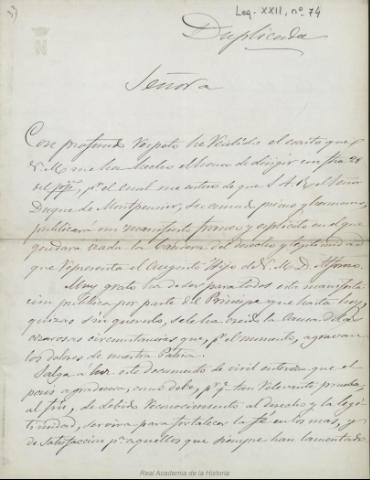 Leg. XXII, nº 74
Duplicada
Señora
Con profundo respeto he recibido el escrito que
V. M. me ha hecho el honor de dirigir con fha 20
del pp.º, p.r el cual me entero de que S. A. R. el Señor
Duque de Montpensier, su amado primo y hermano,
publicará un manifiesto franco y esplícito en el que
quedará izada la bandera del derecho y legitimidad
que representa el Augusto Hijo de V. M. D. Alfonso.
Muy grata ha de ser para todos esta manifesta-
ción pública por parte del Príncipe que hasta hoy,
quizás sin quererlo, se le ha creido la causa de las
azarosas circunstancias que, p.r el momento, agravan
los dolores de nuestra Patria.
Salga a luz este documento de civil entereza que el
pais agradecerá, como debe, p.r q.e tan relevante prueba,
al fin, de debido reconocimiento al derecho y la legi-
timidad, servirá para fortalecer la fé en los más, y
de satisfacción p.a aquellos que siempre han lamentado
Real Academia de la Historia